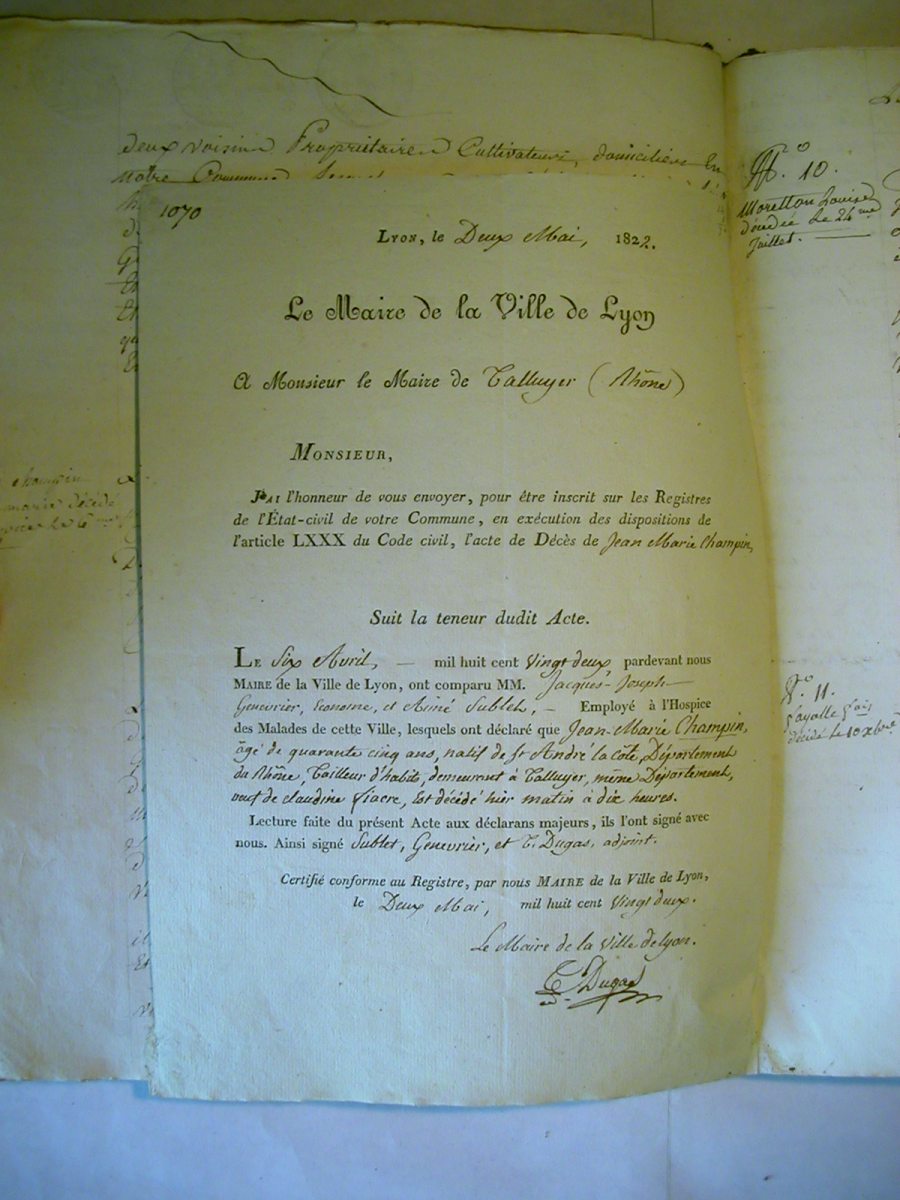 deux voisins Propriétaires Cultivateurs, domiciliés En
notre Commune
1070
Lyon, le Deux Mai, 1822.
Le Maire de la Ville de Lyon
A Monsieur le Maire de Talluyer (Rhône)
Monsieur,
J'ai l'honneur de vous envoyer, pour être inscrit sur les Registres
de l'État-civil de votre Commune, en exécution des dispositions de
l'article LXXX du Code civil, l'acte de Décès de Jean Marie Champin,
Suit la teneur dudit Acte.
Le Six Avril, — mil huit cent Vingt deux pardevant nous
Maire de la Ville de Lyon, ont comparu MM. Jacques-Joseph
Genevrier, Econome, et Aimé Sublet, — Employé à l'Hospice
des Malades de cette Ville, lesquels ont déclaré que Jean-Marie Champin,
âgé de quarante cinq ans, natif de St André la côte, Département
du Rhône, Tailleur d'habits, demeurant à Talluyer, même Département,
veuf de claudine fiacre, Est décédé hier matin à dix heures.
Lecture faite du présent Acte aux déclarans majeurs, ils l'ont signé avec
nous. Ainsi signé Sublet, Genevrier, et C. Dugas, adjoint.
Certifié conforme au Registre, par nous Maire de la Ville de Lyon,
le Deux Mai, mil huit cent Vingt deux.
Le Maire de la Ville de Lyon.
C. Dugas
champin
marie décédé
le 6me
N.° 10.
Moretton Louise
décédée le 24 me
Juillet.
N.° 11.
fayolle
décédé le 10 xbre